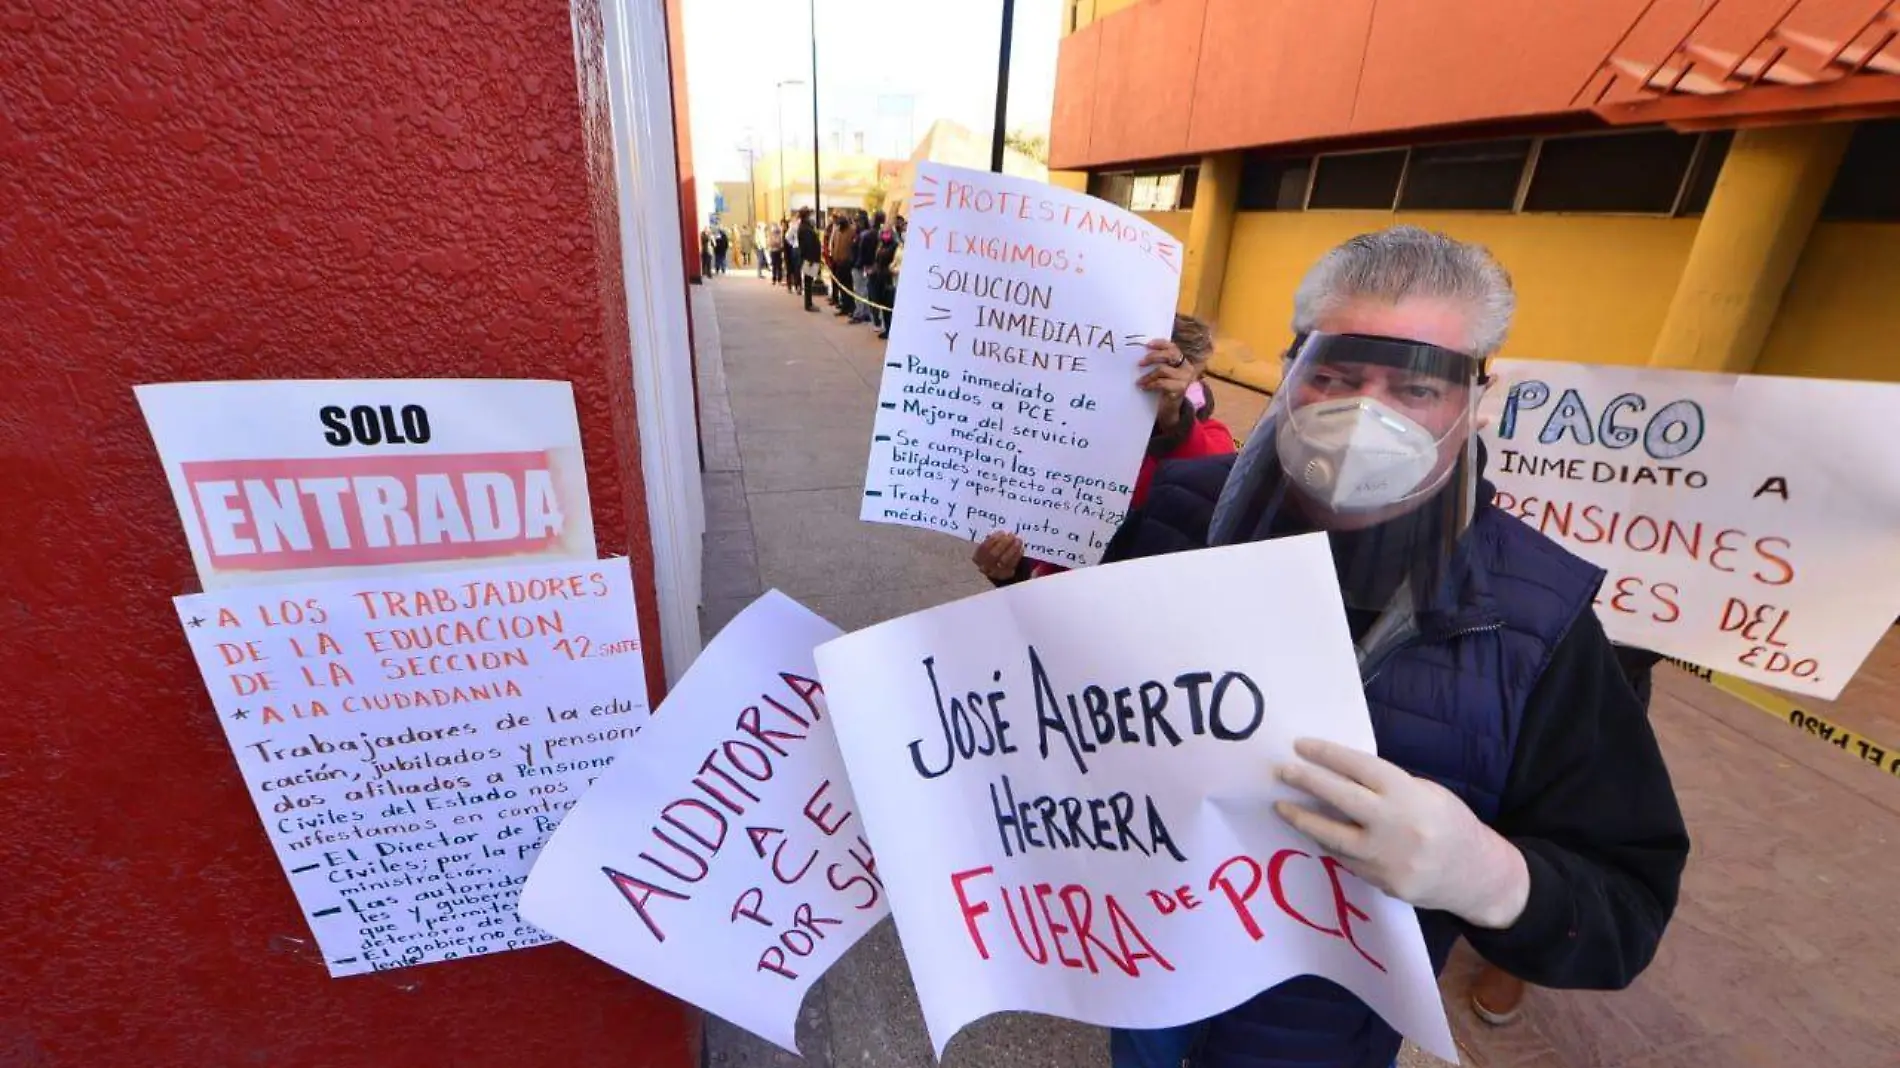 SOLO
ENTRADA
* A LOS TRABJADORES
DE LA EDUCACION
DE LA SECCION 12 SNTE
* A LA CIUDADANIA
Trabajadores de la edu-
cación, jubilados y pension
dos afiliados a Pensione
Civiles del Estado nos
nifestamos en contra
- El Director de Pe
Civiles; por la pé
ministración.
- Las autorida
les y gubern
que permite
deterioro de
- El gobierno es
lente a la prob
AUDITORIA
A
PCE
POR SH
= PROTESTAMOS =
Y EXIGIMOS:
SOLUCION
= INMEDIATA =
Y URGENTE
- Pago inmediato de
adeudos a PCE.
- Mejora del servicio
médico.
- Se cumplan las responsa-
bilidades respecto a las
cuotas y aportaciones (Art 22
- Trato y pago justo a los
médicos y ermeras
JOSÉ ALBERTO
HERRERA
FUERA DE PCE
PAGO
INMEDIATO A
PENSIONES
LES DEL
EDO.
O EL PASO